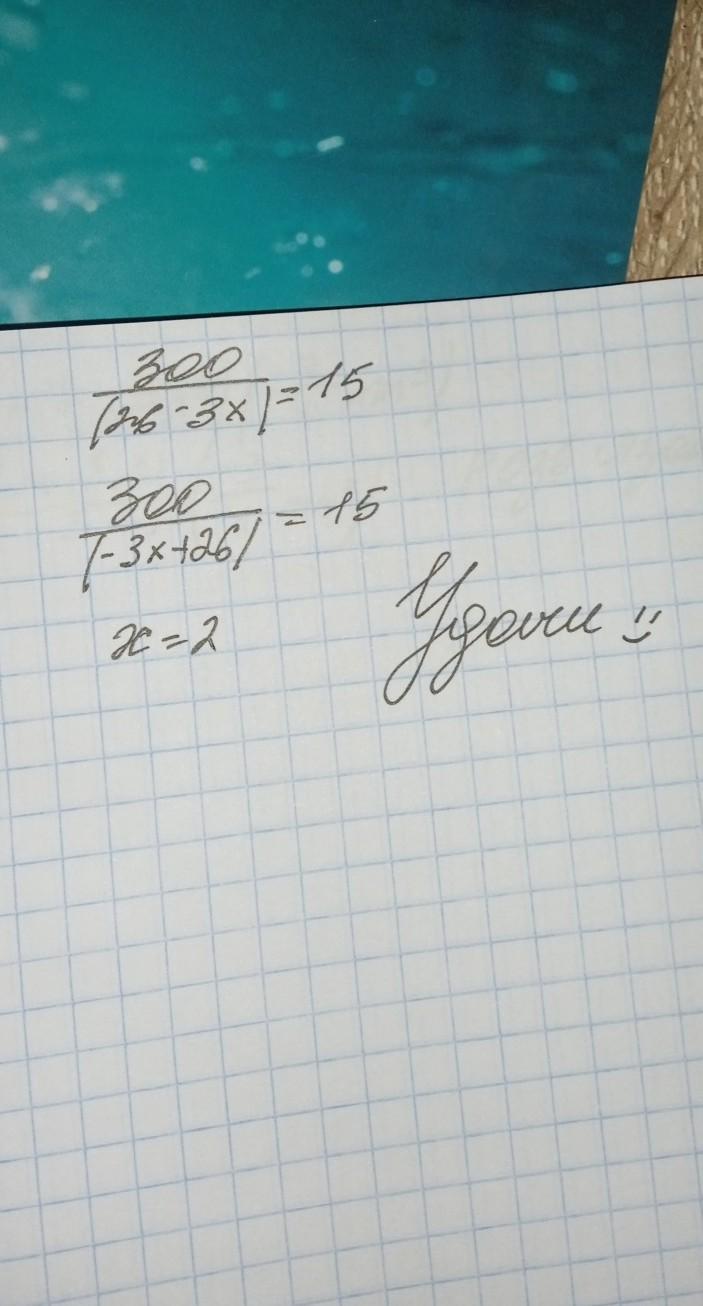 300
|26-3x| = 15
300
|-3x+26| = 15
x=2
Удачи